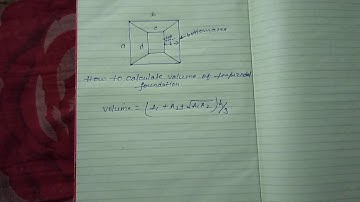 b
c
a
d
bottom area
How to calculate volume of trapezoidal
foundation
volume = (A₁ + A₂ + √A₁A₂) h/3